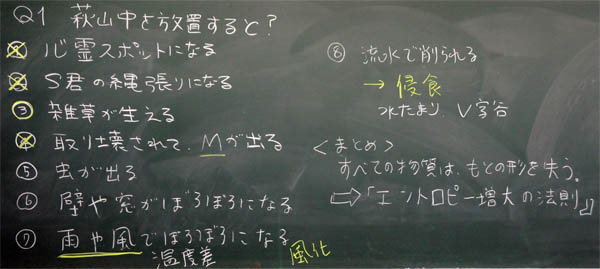 Q1 萩山中を放置すると?
① 心霊スポットになる
② S君の縄張りになる
③ 雑草が生える
④ 取り壊されて、Mが出る
⑤ 虫が出る
⑥ 壁や窓がぼろぼろになる
⑦ 雨や風でぼろぼろになる
温度差 風化
⑧ 流水で削られる
→ 侵食
水たまり、V字谷
<まとめ>
すべての物質は、もとの形を失う。
⇨「エントロピー増大の法則」